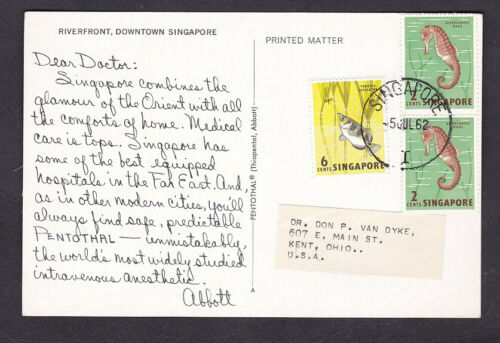 RIVERFRONT, DOWNTOWN SINGAPORE
Dear Doctor:
Singapore combines the
glamour of the Orient with all
the comforts of home. Medical
care is tops. Singapore has
some of the best equipped
hospitals in the Far East. And,
as in other modern cities, you'll
always find safe, predictable
PENTOTHAL — unmistakably,
the world's most widely studied
intravenous anesthetic.
Abbott
PENTOTHAL® (Thiopental, Abbott)
PRINTED MATTER
6 CENTS SINGAPORE
HIPPOCAMPUS
CENTS SINGAPORE
HIPPOCAMPUS
2 CENTS SINGAPORE
SINGAPORE
5 JUL 62
I
DR. DON P. VAN DYKE,
607 E. MAIN ST.
KENT, OHIO..
U.S.A.